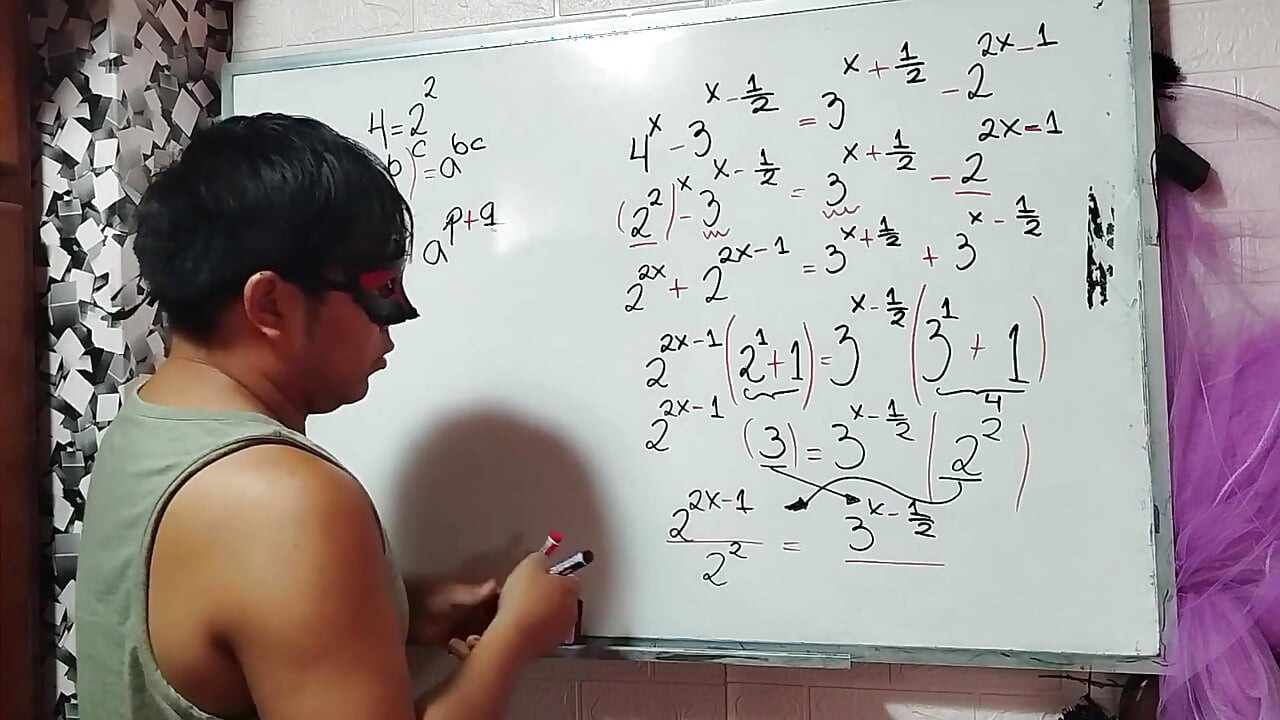 4=2²
b)ᶜ=aᵇᶜ
a^(p+q)
4^x - 3^(x-1/2) = 3^(x+1/2) - 2^(2x-1)
(2²)^x - 3^(x-1/2) = 3^(x+1/2) - 2^(2x-1)
2^(2x) + 2^(2x-1) = 3^(x+1/2) + 3^(x-1/2)
2^(2x-1) (2¹+1) = 3^(x-1/2) (3¹+1)
4
2^(2x-1) (3) = 3^(x-1/2) (2²)
2^(2x-1)/2² = 3^(x-1/2)